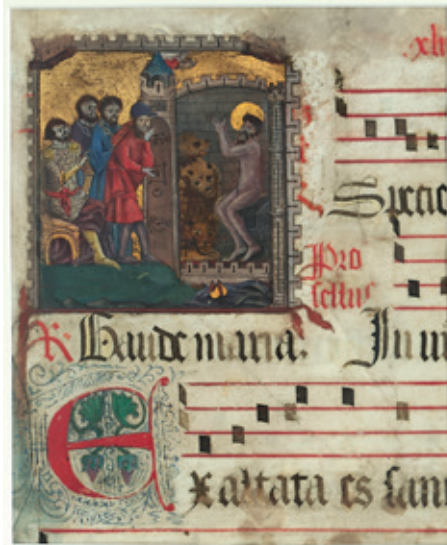 xli
Specie
Pro
R Gaude maria. In u
Exaltata es san